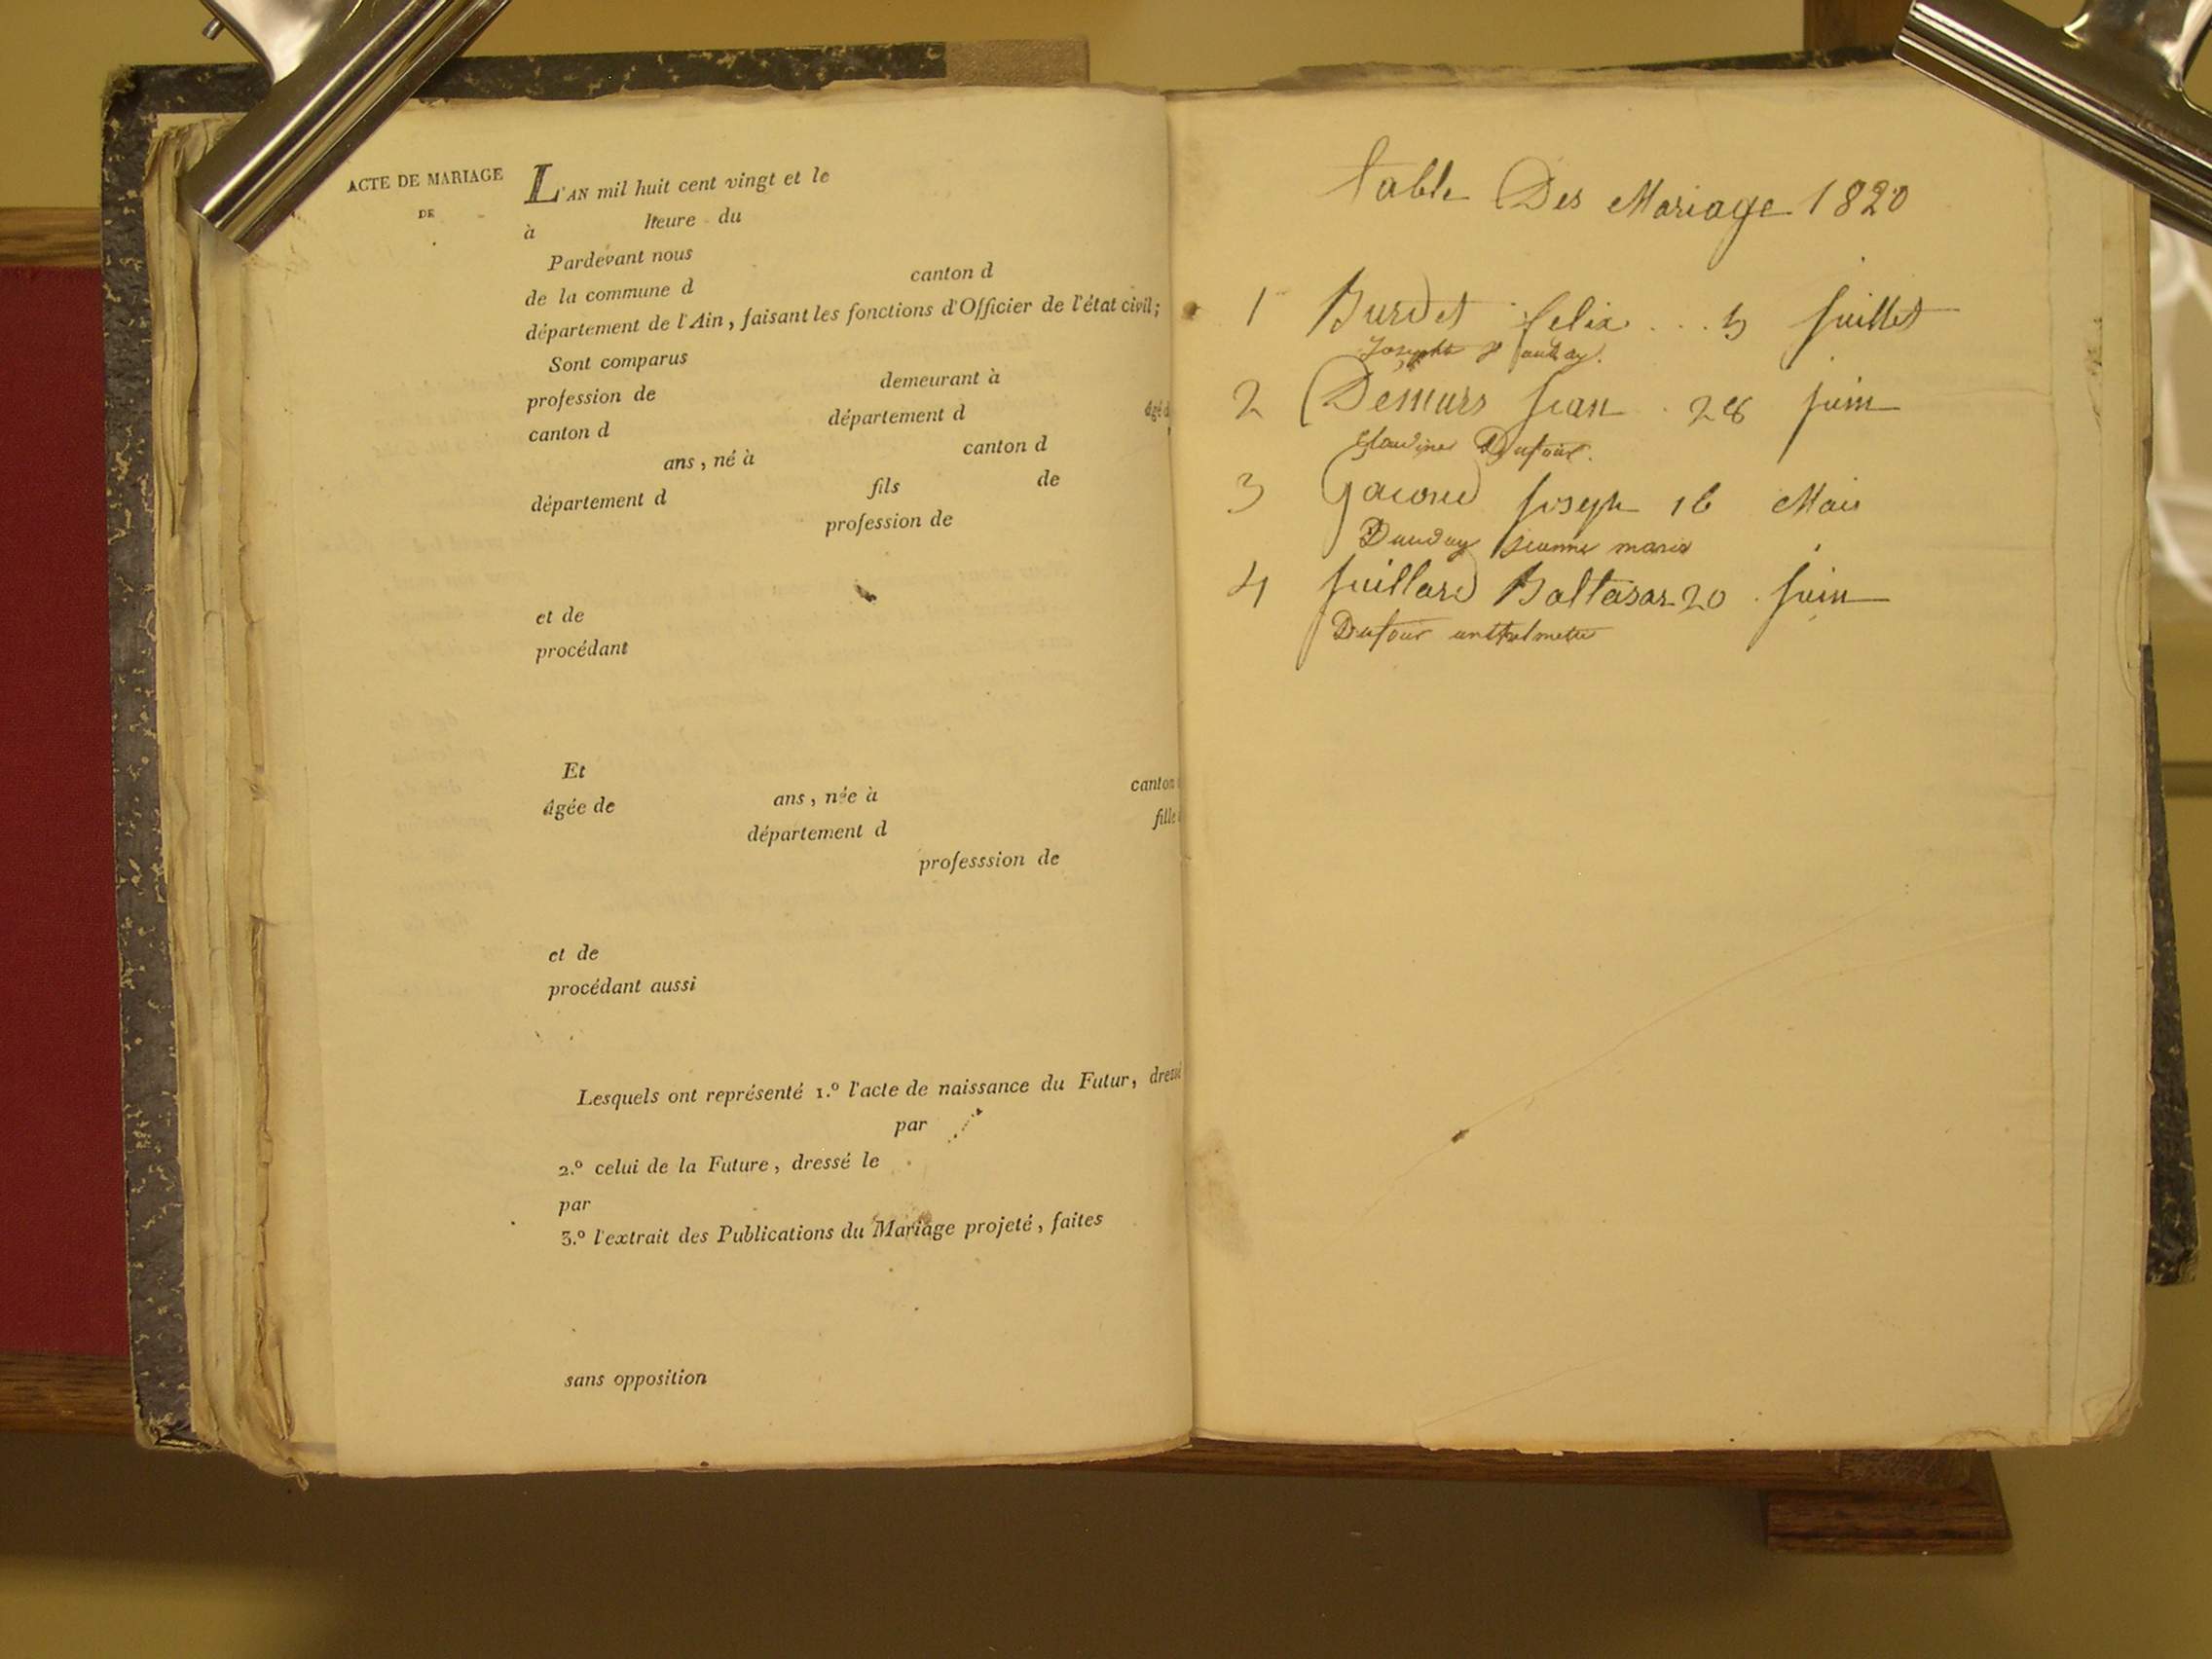 ACTE DE MARIAGE
DE
L'AN mil huit cent vingt et le
à heure du
Pardevant nous
de la commune d canton d
département de l'Ain, faisant les fonctions d'Officier de l'état civil;
Sont comparus
profession de demeurant à
canton d département d âgé d
ans, né à canton d
département d fils de
profession de
et de
procédant
Et
âgée de ans, née à canton
département d fille
professsion de
et de
procédant aussi
Lesquels ont représenté 1.º l'acte de naissance du Futur, dressé
par
2.º celui de la Future, dressé le
par
3.º l'extrait des Publications du Mariage projeté, faites
sans opposition
table Des Mariage 1820
1 Burdet felix ... 5 juillet
Josephte
2 Demurs jean . 28 juin
Claudine Dufour.
3 Gacond joseph 16 Mais
Dauday jeanne marie
4 juillard Baltasar 20 . juin
Dufour anthelmette